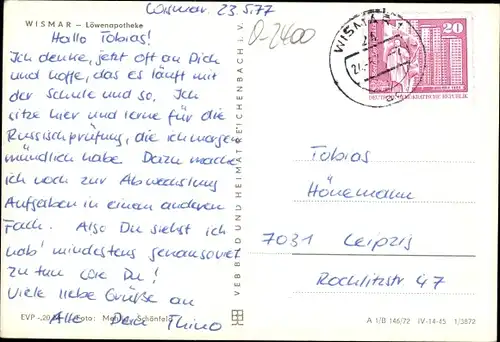 Wismar. 23.5.77
WISMAR – Löwenapotheke
Hallo Tobias!
Ich denke, jetzt oft an Dich
und hoffe, das es läuft mit
der Schule und so. Ich
sitze hier und lerne für die
Russischprüfung, die ich morgen
mündlich habe. Dazu mache
ich noch zur Abwechslung
Aufgaben in einem anderen
Fach. Also Du siehst ich
hab' mindestens genausoviel
zu tun wie Du!
Viele liebe Grüße an
Alle Dein Thino
EVP -,20 Foto: Schönfeld
VEB BILD UND HEIMAT REICHENBACH i. V.
D-2400
WISMAR 1
20
DEUTSCHE DEMOKRATISCHE REPUBLIK
Tobias
Hönemann
7031 Leipzig
Rochlitzstr 47
A 1/B 146/72 IV-14-45 1/3872